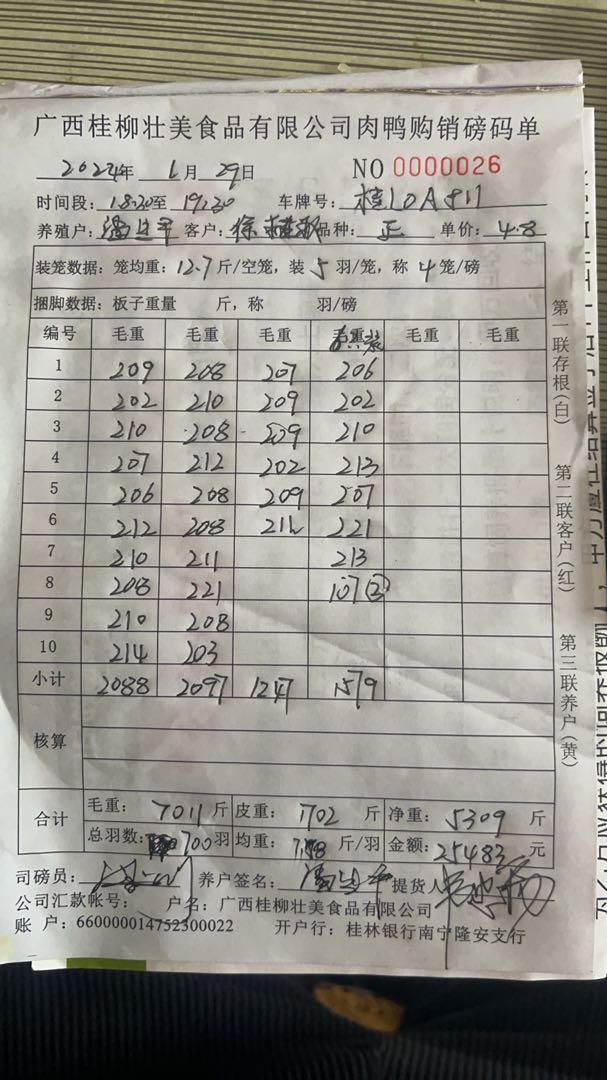 广西桂柳壮美食品有限公司肉鸭购销磅码单
2024年 6月 29日 NO 0000026
时间段: 18.30至 19:30 车牌号: 桂10A811
养殖户: 客户: 徐 品种: 正 单价: 4.8
装笼数据: 笼均重: 12.7 斤/空笼, 装 5 羽/笼, 称 4 笼/磅
捆脚数据: 板子重量 斤, 称 羽/磅
编号 毛重 毛重 毛重 毛重 毛重
1 209 208 207 206
2 202 210 209 202
3 210 208 209 210
4 207 212 202 213
5 206 208 209 207
6 212 208 211 221
7 210 211 213
8 208 221 107②
9 210 208
10 214 203
小计 2088 2097 1247 1579
核算
合计 毛重: 7011 斤 皮重: 1702 斤 净重: 5309 斤
总羽数: 700 羽 均重: 7.58 斤/羽 金额: 25483 元
司磅员: 养户签名: 提货人
公司汇款帐号: 户名: 广西桂柳壮美食品有限公司
账 户: 660000014752300022 开户行: 桂林银行南宁隆安支行
第一联存根(白)
第二联客户(红)
第三联养户(黄)